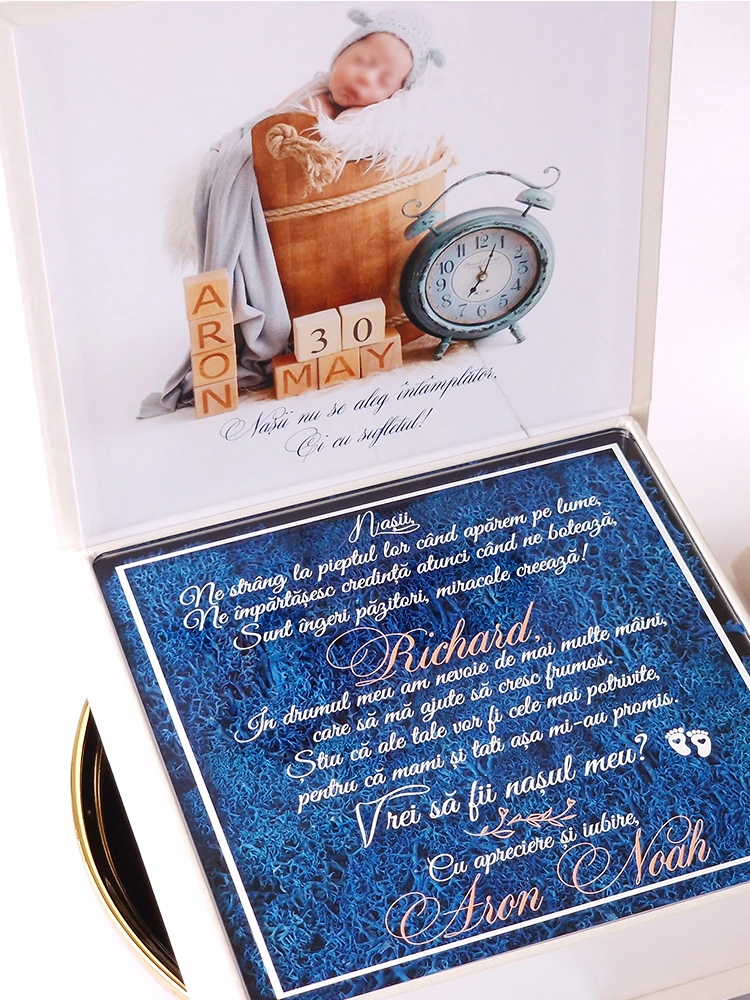 ARON
30
MAY
Nașii nu se aleg întâmplător,
Ci cu sufletul!
Nașii,
Ne strâng la pieptul lor când apărem pe lume,
Ne împărtășesc credință atunci când ne botează,
Sunt îngeri păzitori, miracole creează!
Richard,
În drumul meu am nevoie de mai multe mâini,
care să mă ajute să cresc frumos.
Știu că ale tale vor fi cele mai potrivite,
pentru că mami și tati așa mi-au promis.
Vrei să fii nașul meu?
Cu apreciere și iubire,
Aron Noah